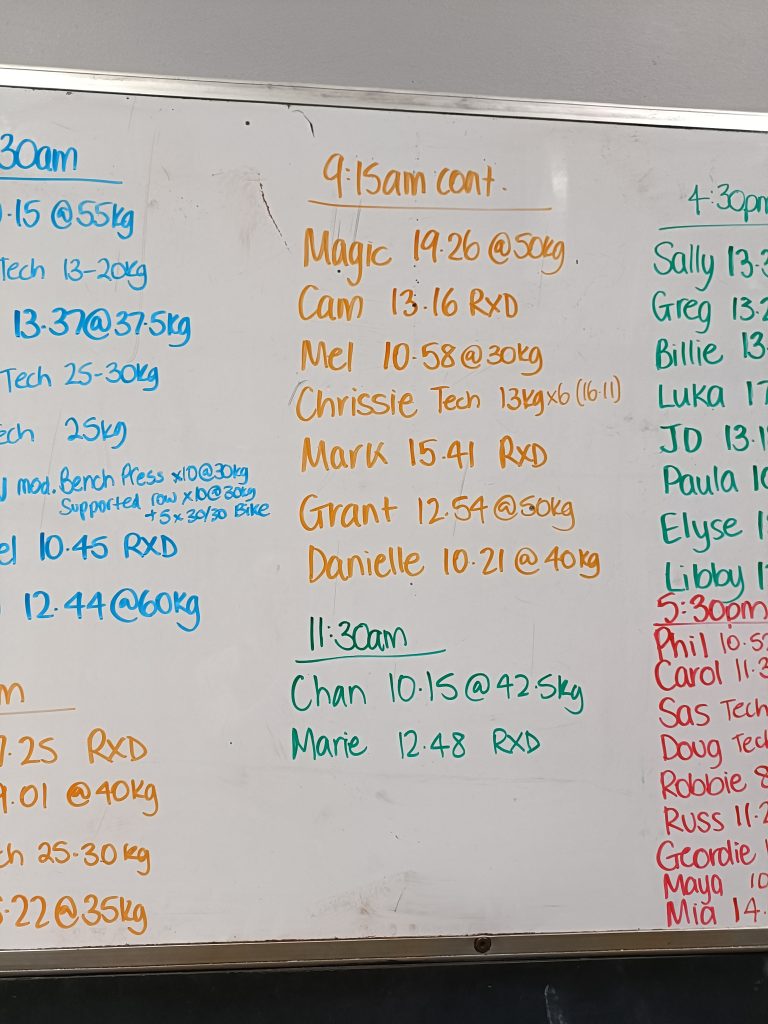 30am
.15 @55kg
Tech 13-20kg
13.37@37.5kg
Tech 25-30kg
ech 25kg
mod. Bench Press x10@30kg
Supported row x10@30kg
+5x30/30 Bike
el 10.45 RXD
12.44@60kg
m
.25 RXD
.01 @40kg
ch 25-30kg
.22@35kg
9:15am cont.
Magic 19.26 @50kg
Cam 13.16 RXD
Mel 10.58@30kg
Chrissie Tech 13kgx6 (16.11)
Mark 15.41 RXD
Grant 12.54@50kg
Danielle 10.21@40kg
11:30am
Chan 10.15@42.5kg
Marie 12.48 RXD
4:30pm
Sally 13.3
Greg 13.2
Billie 13.
Luka 17
JD 13.1
Paula 10
Elyse 1
Libby 1
5:30pm
Phil 10.5
Carol 11.3
Sas Tech
Doug Tec
Robbie 8
Russ 11.2
Geordie 1
Maya 10
Mia 14.